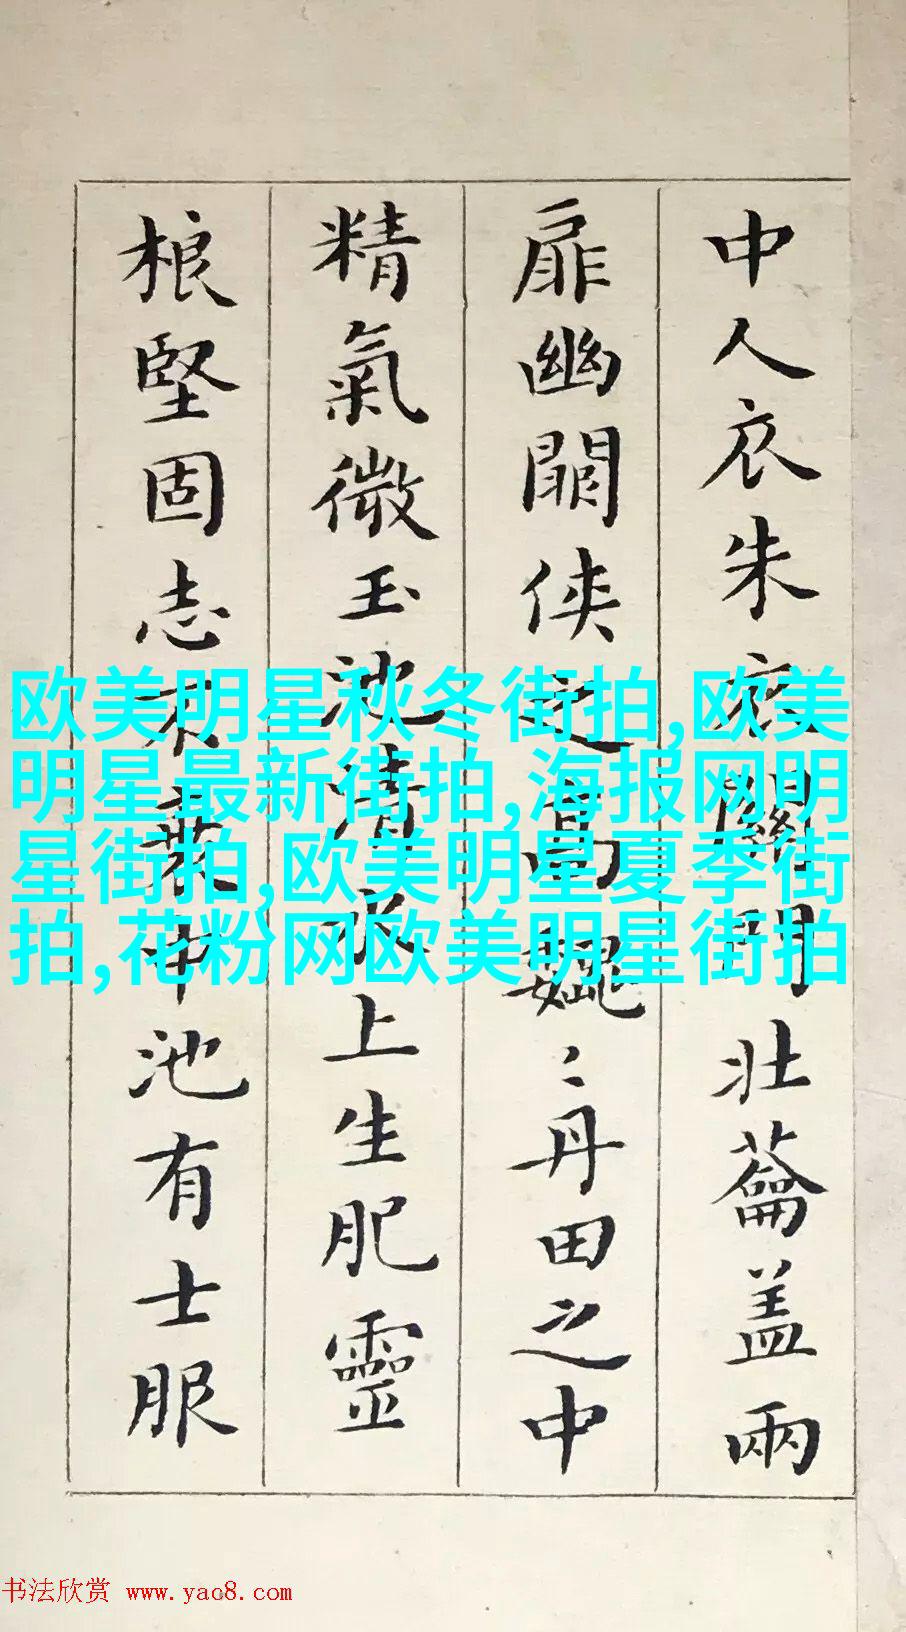 中人衣朱衣關門壯蘥盖兩
扉幽闕侠之高巍〻丹田之中
精氣微玉池清水上生肥靈
根堅固志不衰中池有士服
欧美明星秋冬街拍,欧美
明星最新街拍,海报网明
星街拍,欧美明星夏季街
拍,花粉网欧美明星街拍
书法欣赏 www.yac8.com